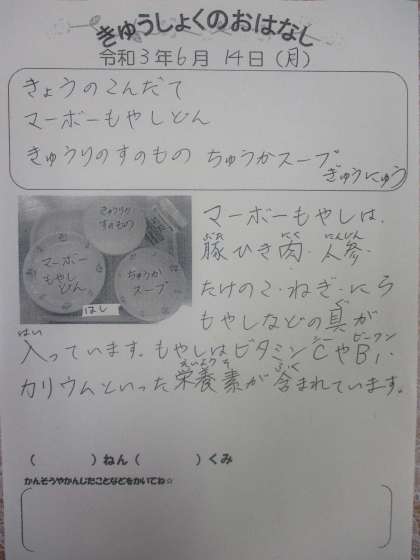 きゅうしょくのおはなし
令和3年6月14日(月)
きょうのこんだて
マーボーもやしどん
きゅうりのすのもの ちゅうかスープ
ぎゅうにゅう
きゅうりのすのもの
マーボーもやしどん
ちゅうかスープ
はし
マーボーもやしは、
豚ひき肉・人参・
ぶた にく にんじん
たけのこ・ねぎ・にら
もやしなどの具が
ぐ
はい
入っています。もやしはビタミンCやB1、
シー ビーワン
カリウムといった栄養素が含まれています。
えいようそ ふく
( )ねん( )くみ
かんそうやかんじたことなどをかいてね☆